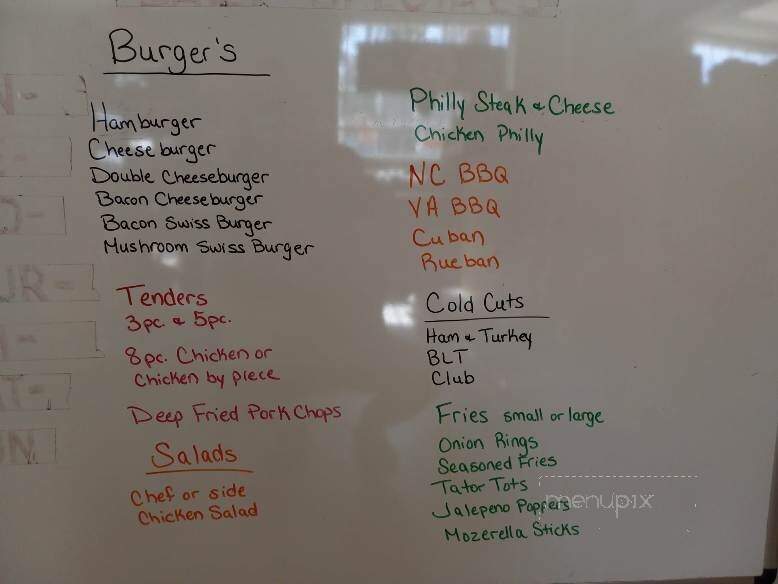 Burger's
Hamburger
Cheeseburger
Double Cheeseburger
Bacon Cheeseburger
Bacon Swiss Burger
Mushroom Swiss Burger
Tenders
3pc. & 5pc.
8pc. Chicken or
Chicken by piece
Deep Fried Pork Chops
Salads
Chef or side
Chicken Salad
Philly Steak & Cheese
Chicken Philly
NC BBQ
VA BBQ
Cuban
Rueban
Cold Cuts
Ham & Turkey
BLT
Club
Fries small or large
Onion Rings
Seasoned Fries
Tator Tots
Jalepeno Poppers
Mozerella Sticks
menupix